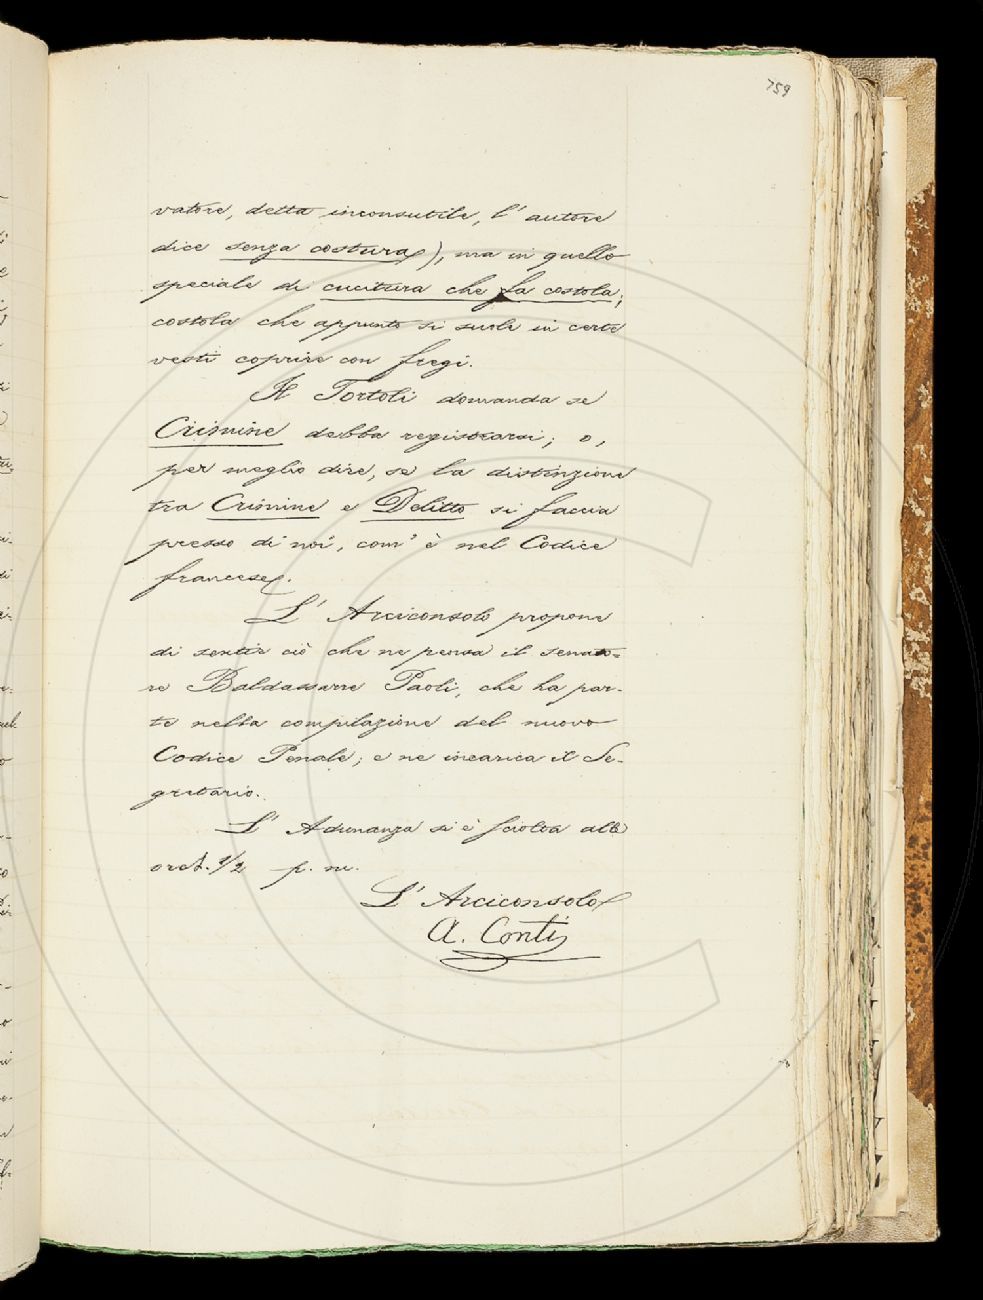 759
vatore, detta inconsutile, l' autore
dice senza costura), ma in quello
speciale di cucitura che fa costola;
costola che appunto si suole in certe
vesti coprire con fregi.
Il Tortoli domanda se
Crimine debba registrarsi; o,
per meglio dire, se la distinzione
tra Crimine e Delitto si faccia
presso di noi, com' è nel Codice
francese.
L' Arciconsolo propone
di sentir ciò che ne pensa il senato=
re Baldassarre Paoli, che ha par-
te nella compilazione del nuovo
Codice Penale; e ne incarica il Se-
gretario.
L' Adunanza si è sciolta alle
ore 1/2 p. m.
L' Arciconsolo
A. Conti